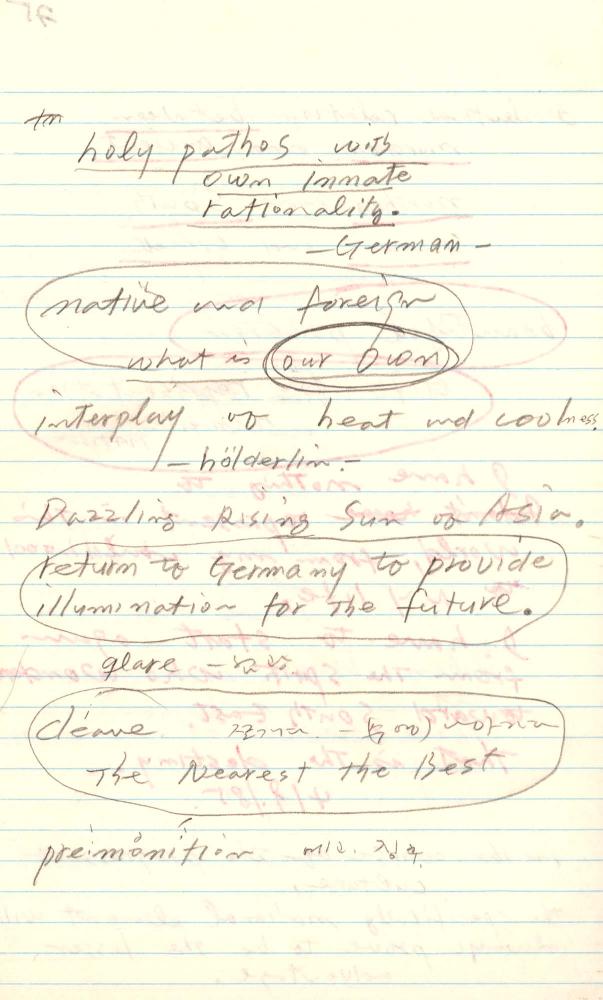 holy pathos with
own innate
rationality.
- German -
native and foreign
what is our own
interplay of heat and coolness.
- hölderlin -
Dazzling Rising Sun of Asia.
return to Germany to provide
illumination for the future.
glare -
cleave
The Nearest the Best
premonition 예고. 징후.